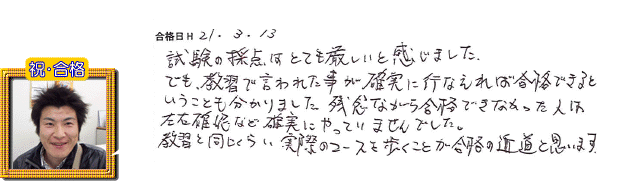 祝・合格
合格日 H 21. 3. 13
試験の採点はとても厳しいと感じました.
でも、教習で言われた事が確実に行なえれば合格できると
いうことも分かりました 残念ながら合格できなかった人は
左右確認など確実にやっていませんでした。
教習と同じくらい実際のコースを歩くことが合格の近道と思います.